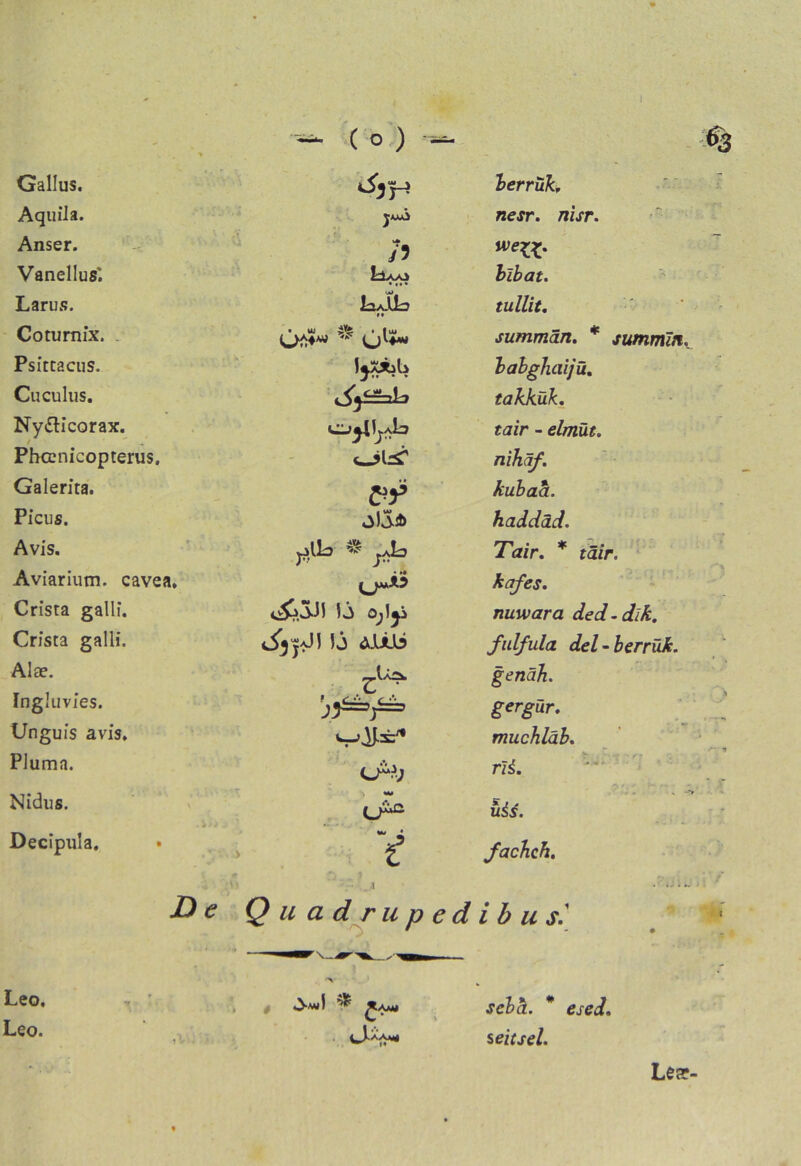 — ( o ) — 63
Gallus. بروك berrük.
Aquila. نسر nesr. nisr.
Anser. وز wezz.
Vanellus. بيبط bībat.
Larus. طلّيط tullit.
Coturnix. سمّان * سمّين summān. * summīn.
Psittacus. ببغيوا babghaijū.
Cuculus. طكّوك takkūk.
Nycticorax. طير الموت tair - elmūt.
Phœnicopterus. نحاف nihāf.
Galerita. قوبع kubaà.
Picus. هداد haddād.
Avis. طير * طاير Tair. * tāir.
Aviarium. cavea. قفس kafes.
Crista galli. نوارة دا الديك nuwara ded - dīk.
Crista galli. فلفلة دا البروك fulfula del - berrūk.
Alæ. جناح ġenāh.
Ingluvies. كركور gergūr.
Unguis avis. مخلاب muchlāb.
Pluma. ريش rīś.
Nidus. عش ūśś.
Decipula. فخ fachch.
De Quadrupedibus.
Leo. سبع * اسد sebà. * esed.
Leo. سيتسل seitsel.
Leæ-